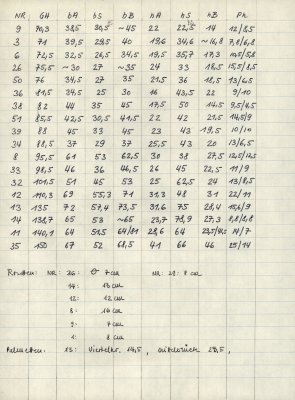 NR GH bA bS bB hA hS hB Ph.
9 70,3 38,5 30,5 ~45 22 22,5 14 12/8,5
3 71 39,5 29,5 40 19,6 34,6 ~16,8 7,8/6,8
6 72,5 32,5 26,5 34,5 19,5 35,7 17,3
26 75,5 ~30 27 ~35 24 33 18,5 15,5/8,5
50 76 34,5 27 35 21,5 36 18,5 13/6,5
36 81,5 34,5 25 30 16 43,5 22 9/10
38 82 44 35 45 17,5 50 14,5 9,5/4,5
51 85,5 42,5 30,5 41,5 22 42 21,5 14,5/9
39 88 45 33 45 23 43 19,5 10/10
34 88,5 37 29 37 25,5 43 20 13/6,5
8 95,5 61 53 62,5 30 38 27,5 12,5/12,5
33 98,5 46 36 46,5 26 45 22,5 11/9
32 101,5 51 45 53 25 62,5 24 13/8,5
12 110,3 69 55,3 71 31,3 48 31 22/11
13 135 72 57,4 73,5 31,6 75 28,4 15,6/9
14 138,7 65 53 ~65 23,7 78,9 27,3 8,8/8,8
11 140,1 64 51,5 64/81 28,6 64 14/7
35 150 67 52 68,5 41 66 46 25/14
Rosetten: NR: 26: Ø 7 cm NR: 21: 8 cm
14: 13 cm
12: 12 cm
8: 16 cm
9: 7 cm
1: 8 cm
Palmetten: 13: 14,5, 28,5,